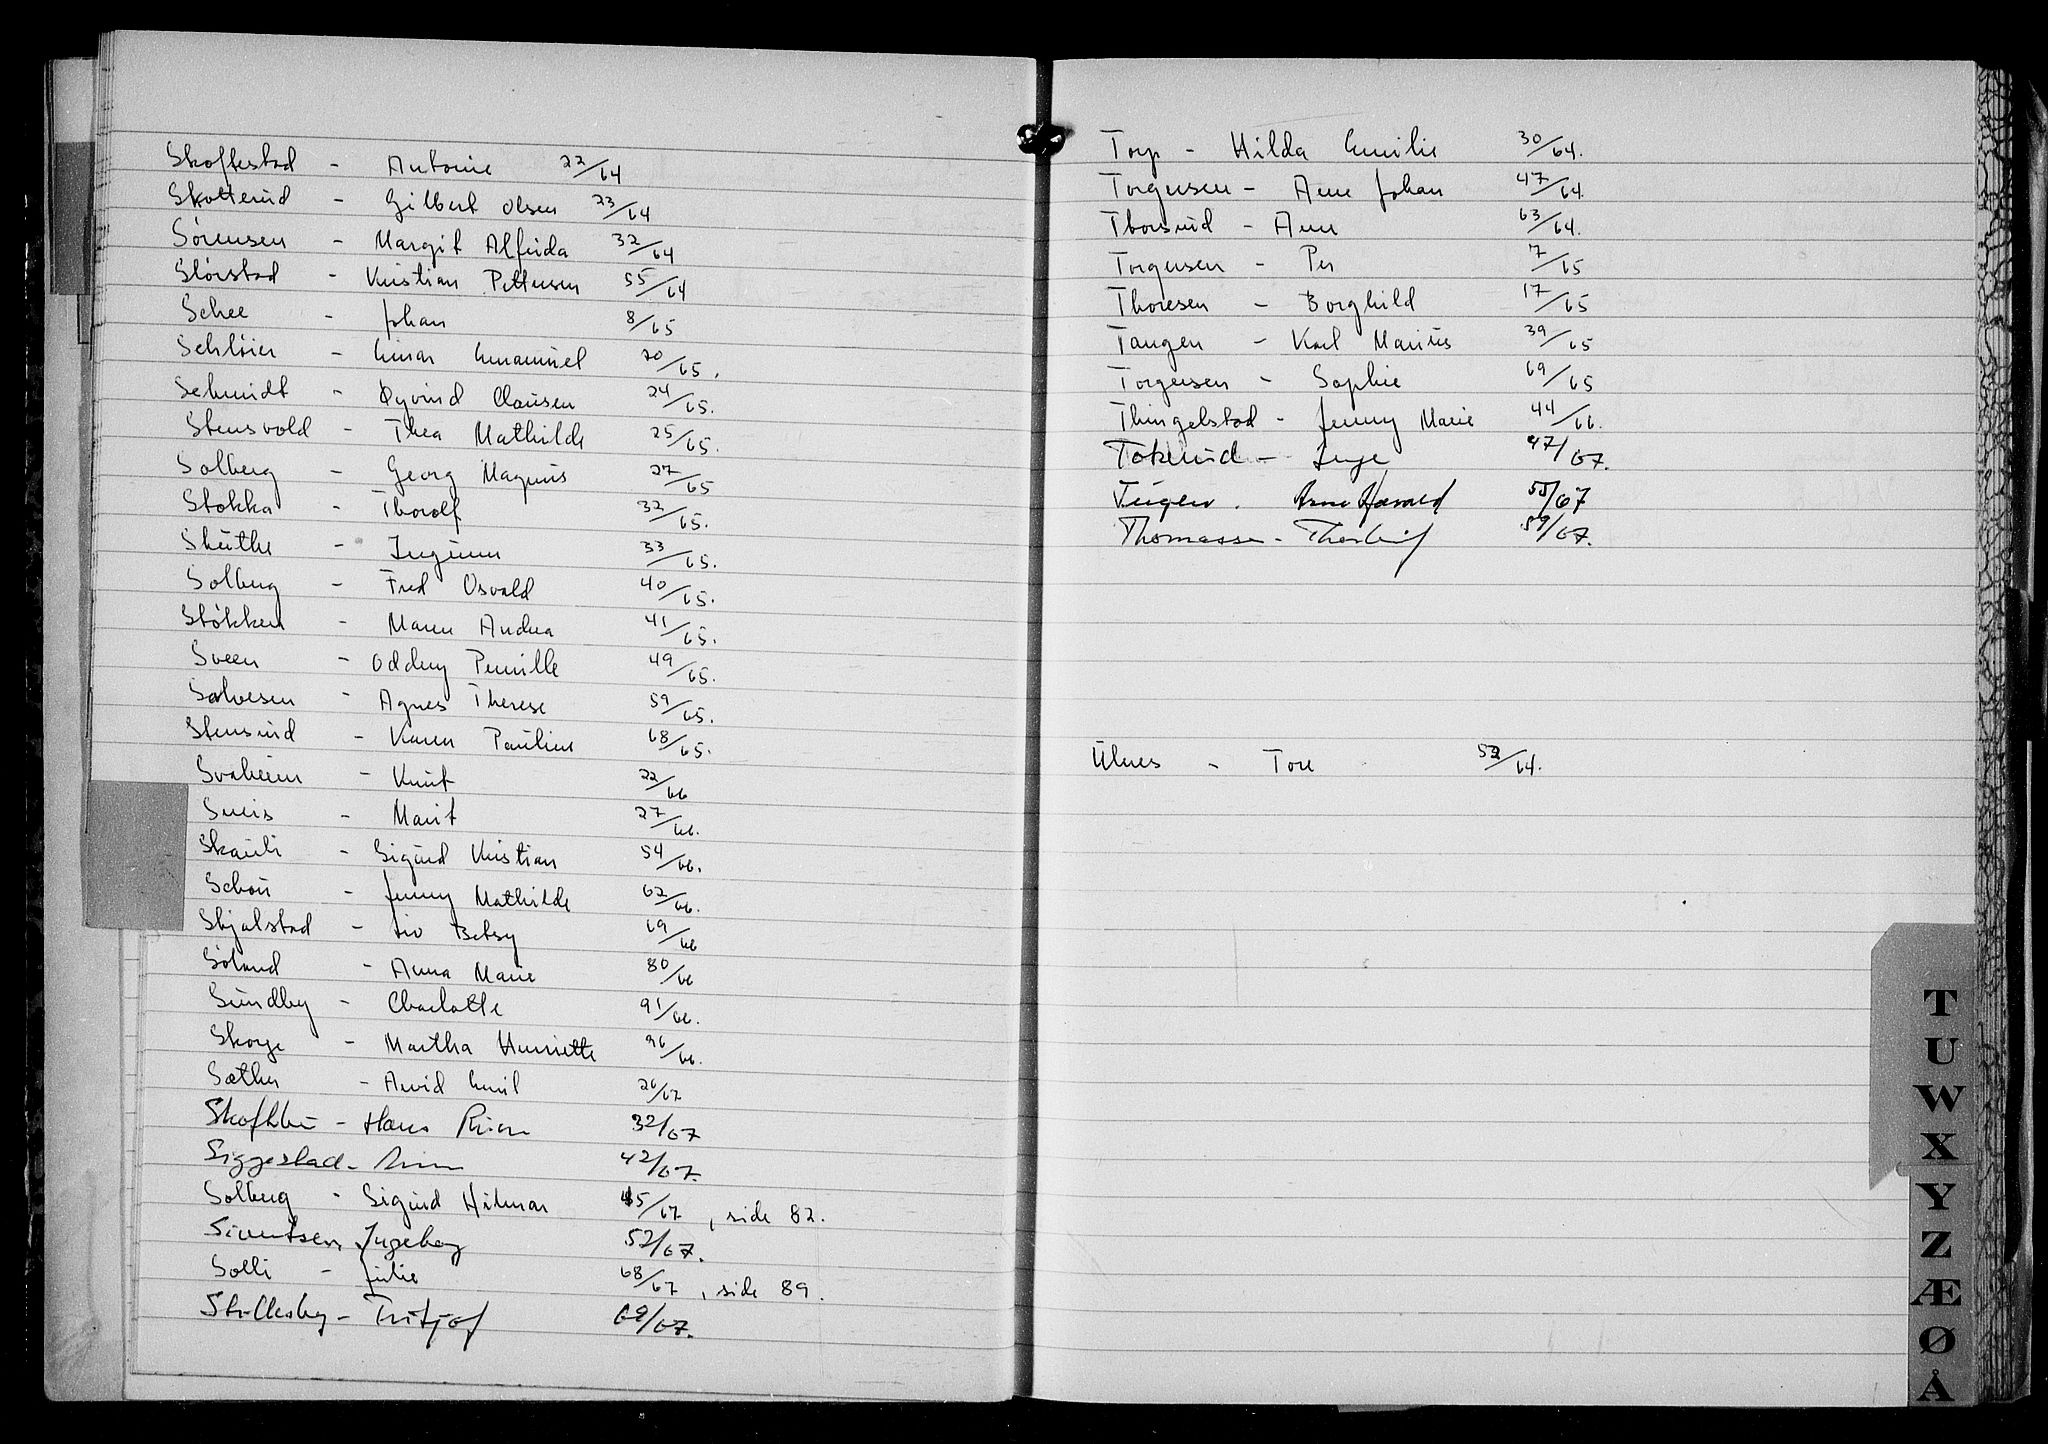 Skoftestad - Antonie 22/64
Skotterud - Gilbert Olsen 23/64
Sørensen - Margit Alfrida 32/64
Størstad - Kristian Pettersen 55/64
Schee - Johan 8/65
Schlöier - Einar Emanuel 20/65.
Schmidt - Øyvind Clausen 24/65.
Stensvold - Thea Mathilde 25/65.
Solberg - Georg Magnus 27/65
Stokka - Thorolf 32/65.
Skuthe - Ingunn 33/65.
Solberg - Fred Osvald 40/65.
Støkken - Maren Andrea 41/65.
Sveen - Oddny Pernille 49/65.
Salvesen - Agnes Therese 59/65.
Stensrud - Karen Pauline 68/65.
Svaheim - Knut 22/66
Marit 27/66.
Skauli - Sigurd Kristian 54/66.
Schou - Jenny Mathilde 62/66.
Skjalstad - Liv Betsy 69/66
Søland - Anna Marie 80/66
Sundby - Charlotte 91/66.
Skorge - Martha Henriette 96/66.
Sæther - Arvid Emil 26/67
- Hans 32/67
Siggestad - 42/67.
Solberg - Sigurd Hilmar 45/67, side 82.
Sivertsen, Ingeborg 52/67.
Solli - Julie 68/67, side 89.
- Fritjof 69/67.
Torp - Hilda Emilie 30/64.
Torgersen - Arne Johan 47/64.
Thorsrud - Arne 63/64.
Torgersen - Per 7/65
Thoresen - Borghild 17/65
Tangen - Karl Marius 39/65
Torgersen - Sophie 69/65
Thingelstad - Jenny Marie 44/66.
Tokerud - Inge 47/67.
Teigen. Arne Harald 55/67
Thomassen - Thorleif 59/67.
Ulnes - Tore 52/64.
T
U
W
X
Y
Z
Æ
Ø
Å